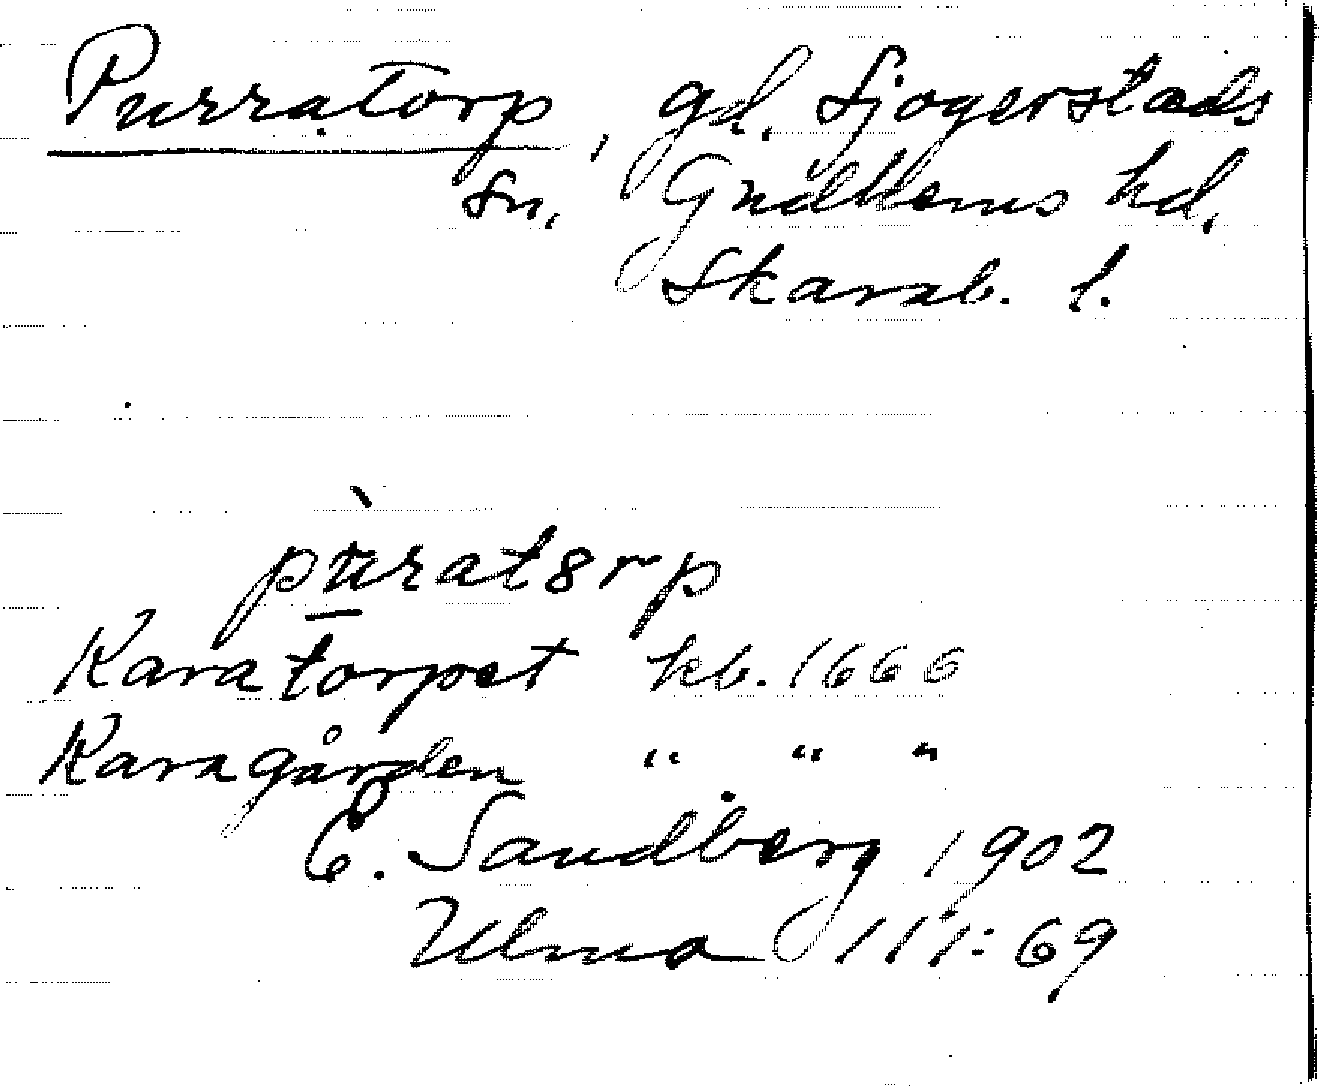 Purratorp, gd. Sjogerstads
sn. Gudhems hd.
Skarab. l.
pùratorp
Karatorpet kb. 1666
Karagården " " "
C. Sandberg 1902
Ulma 111:69